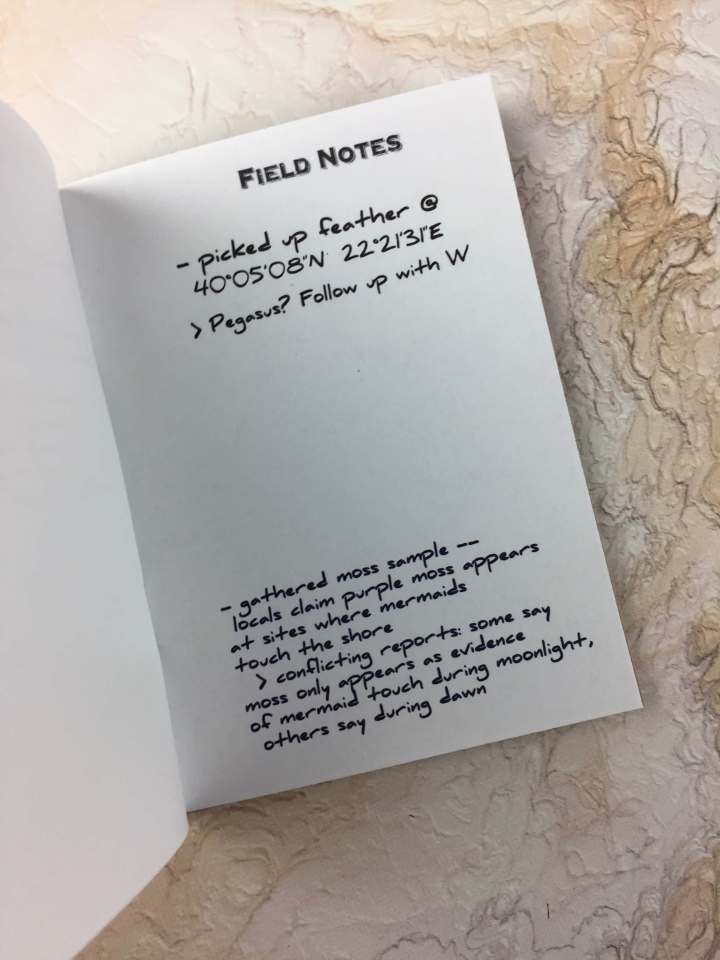 FIELD NOTES
- picked up feather @
40°05'08"N 22°21'31"E
> Pegasus? Follow up with W
- gathered moss sample --
locals claim purple moss appears
at sites where mermaids
touch the shore
> conflicting reports: some say
moss only appears as evidence
of mermaid touch during moonlight,
others say during dawn